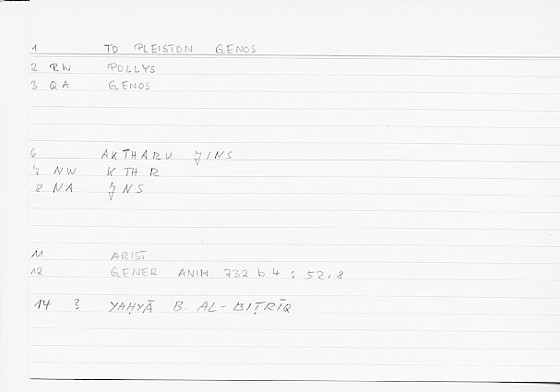 1 TO PLEISTON GENOS
2 RW POLLYS
3 QA GENOS
6 AKTHARU JINS
7 NW KTHR
8 NA JNS
11 ARIST
12 GENER ANIM 732 b 4 : 52,8
14 ? YAḤYĀ B. AL-BIṬRĪQ